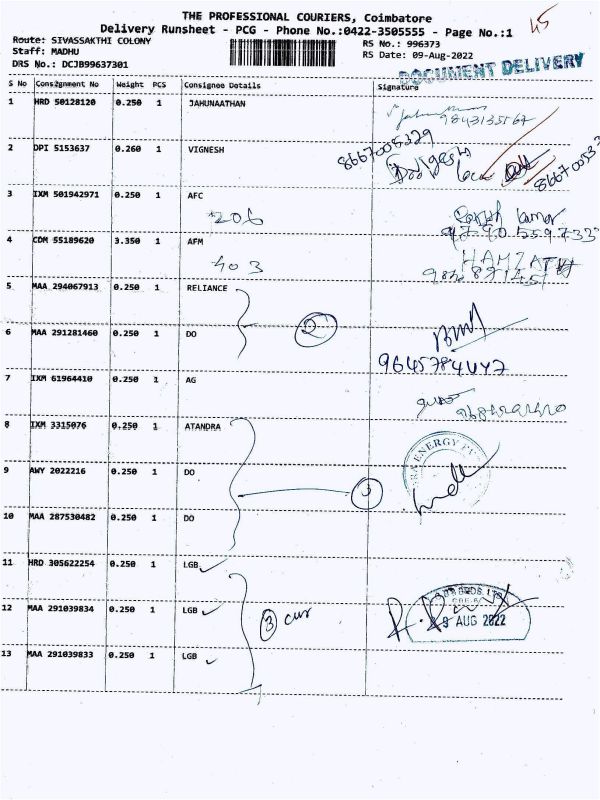 THE PROFESSIONAL COURIERS, Coimbatore
45
Delivery Runsheet - PCG - Phone No.:0422-3505555 - Page No.:1
Route: SIVASSAKTHI COLONY
RS No.: 996373
Staff: MADHU
RS Date: 09-Aug-2022
DRS No.: DCJB99637301
DOCUMENT DELIVERY
S No Consignment No Weight PCS Consignee Details Signature
1 HRD 50128120 0.250 1 JAHUNAATHAN
9843135167
8667005329
2 DPI 5153637 0.260 1 VIGNESH
3 IXM 501942971 0.250 1 AFC
206
4 CDM 55189620 3.350 1 AFM
403
HAMZATH
5 MAA 294067913 0.250 1 RELIANCE
2
6 MAA 291281460 0.250 1 DO
9645784447
7 IXM 61964410 0.250 1 AG
8 IXM 3315076 0.250 1 ATANDRA
ENERGY
9 AWY 2022216 0.250 1 DO
3
10 MAA 287530482 0.250 1 DO
11 HRD 305622254 0.250 1 LGB
12 MAA 291039834 0.250 1 LGB
3
9 AUG 2022
13 MAA 291039833 0.250 1 LGB